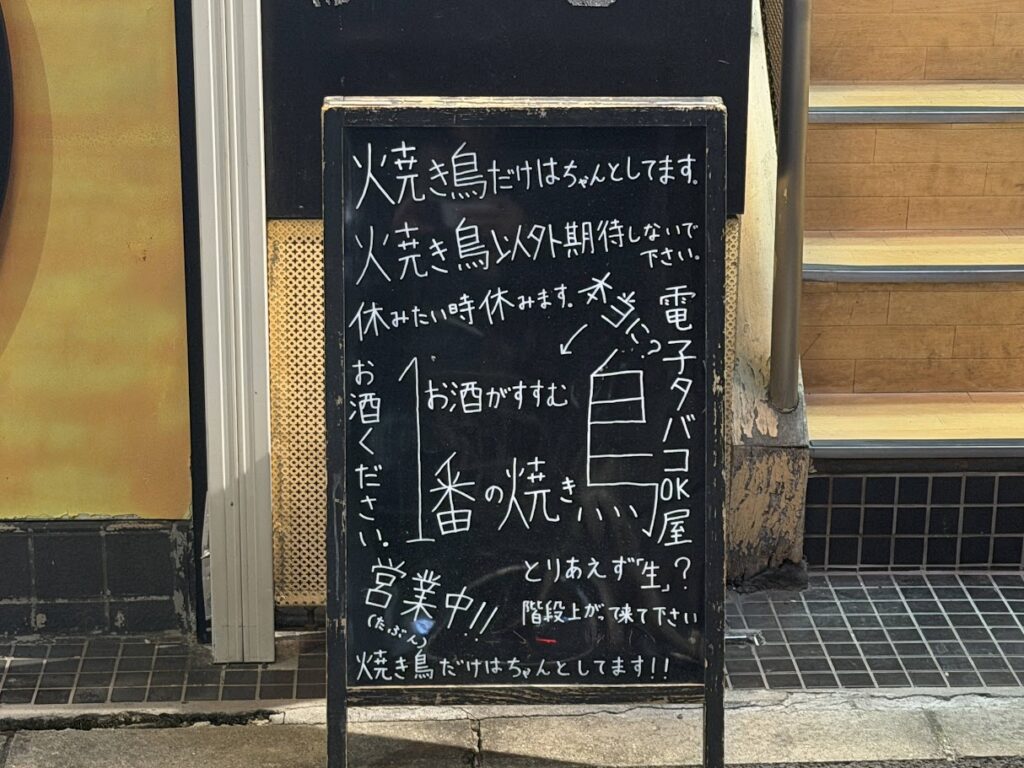 焼き鳥だけはちゃんとしてます。
焼き鳥以外期待しないで
下さい。
休みたい時休みます。
本当に?
電子タバコOK屋
お酒ください。
お酒がすすむ
1番の焼き鳥
とりあえず「生」?
階段上がって来て下さい
営業中!!
(たぶん)
焼き鳥だけはちゃんとしてます!!